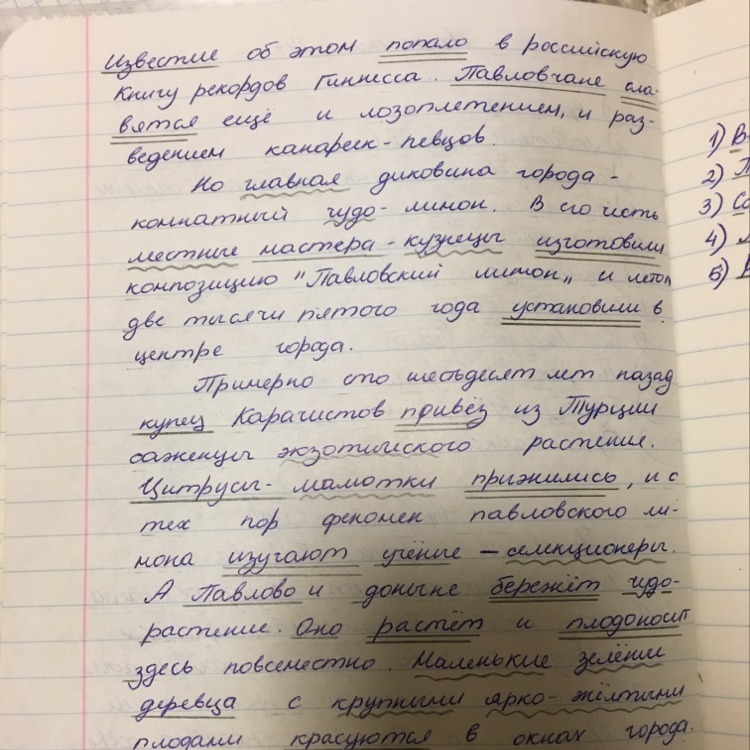 Известие об этом попало в российскую
Книгу рекордов Гиннесса. Павловчане сла-
вятся ещё и лозоплетением, и раз-
ведением канареек-певцов.
Но главная диковина города -
комнатный чудо-лимон. В его честь
местные мастера-кузнецы изготовили
композицию "Павловский лимон" и летом
две тысячи пятого года установили в
центре города.
Примерно сто шестьдесят лет назад
купец Карачистов привёз из Турции
саженцы экзотического растение.
Цитрусы-мамотки прижились, и с
тех пор феномен павловского ли-
мона изучают учёные - селекционеры.
А Павлово и доныне бережёт чудо-
растение. Оно растёт и плодоносит
здесь повсеместно. Маленькие зелёные
деревца с крупными ярко-жёлтыми
плодами красуются в окнах города.
1) В
2) П
3) Со
4)
5) В